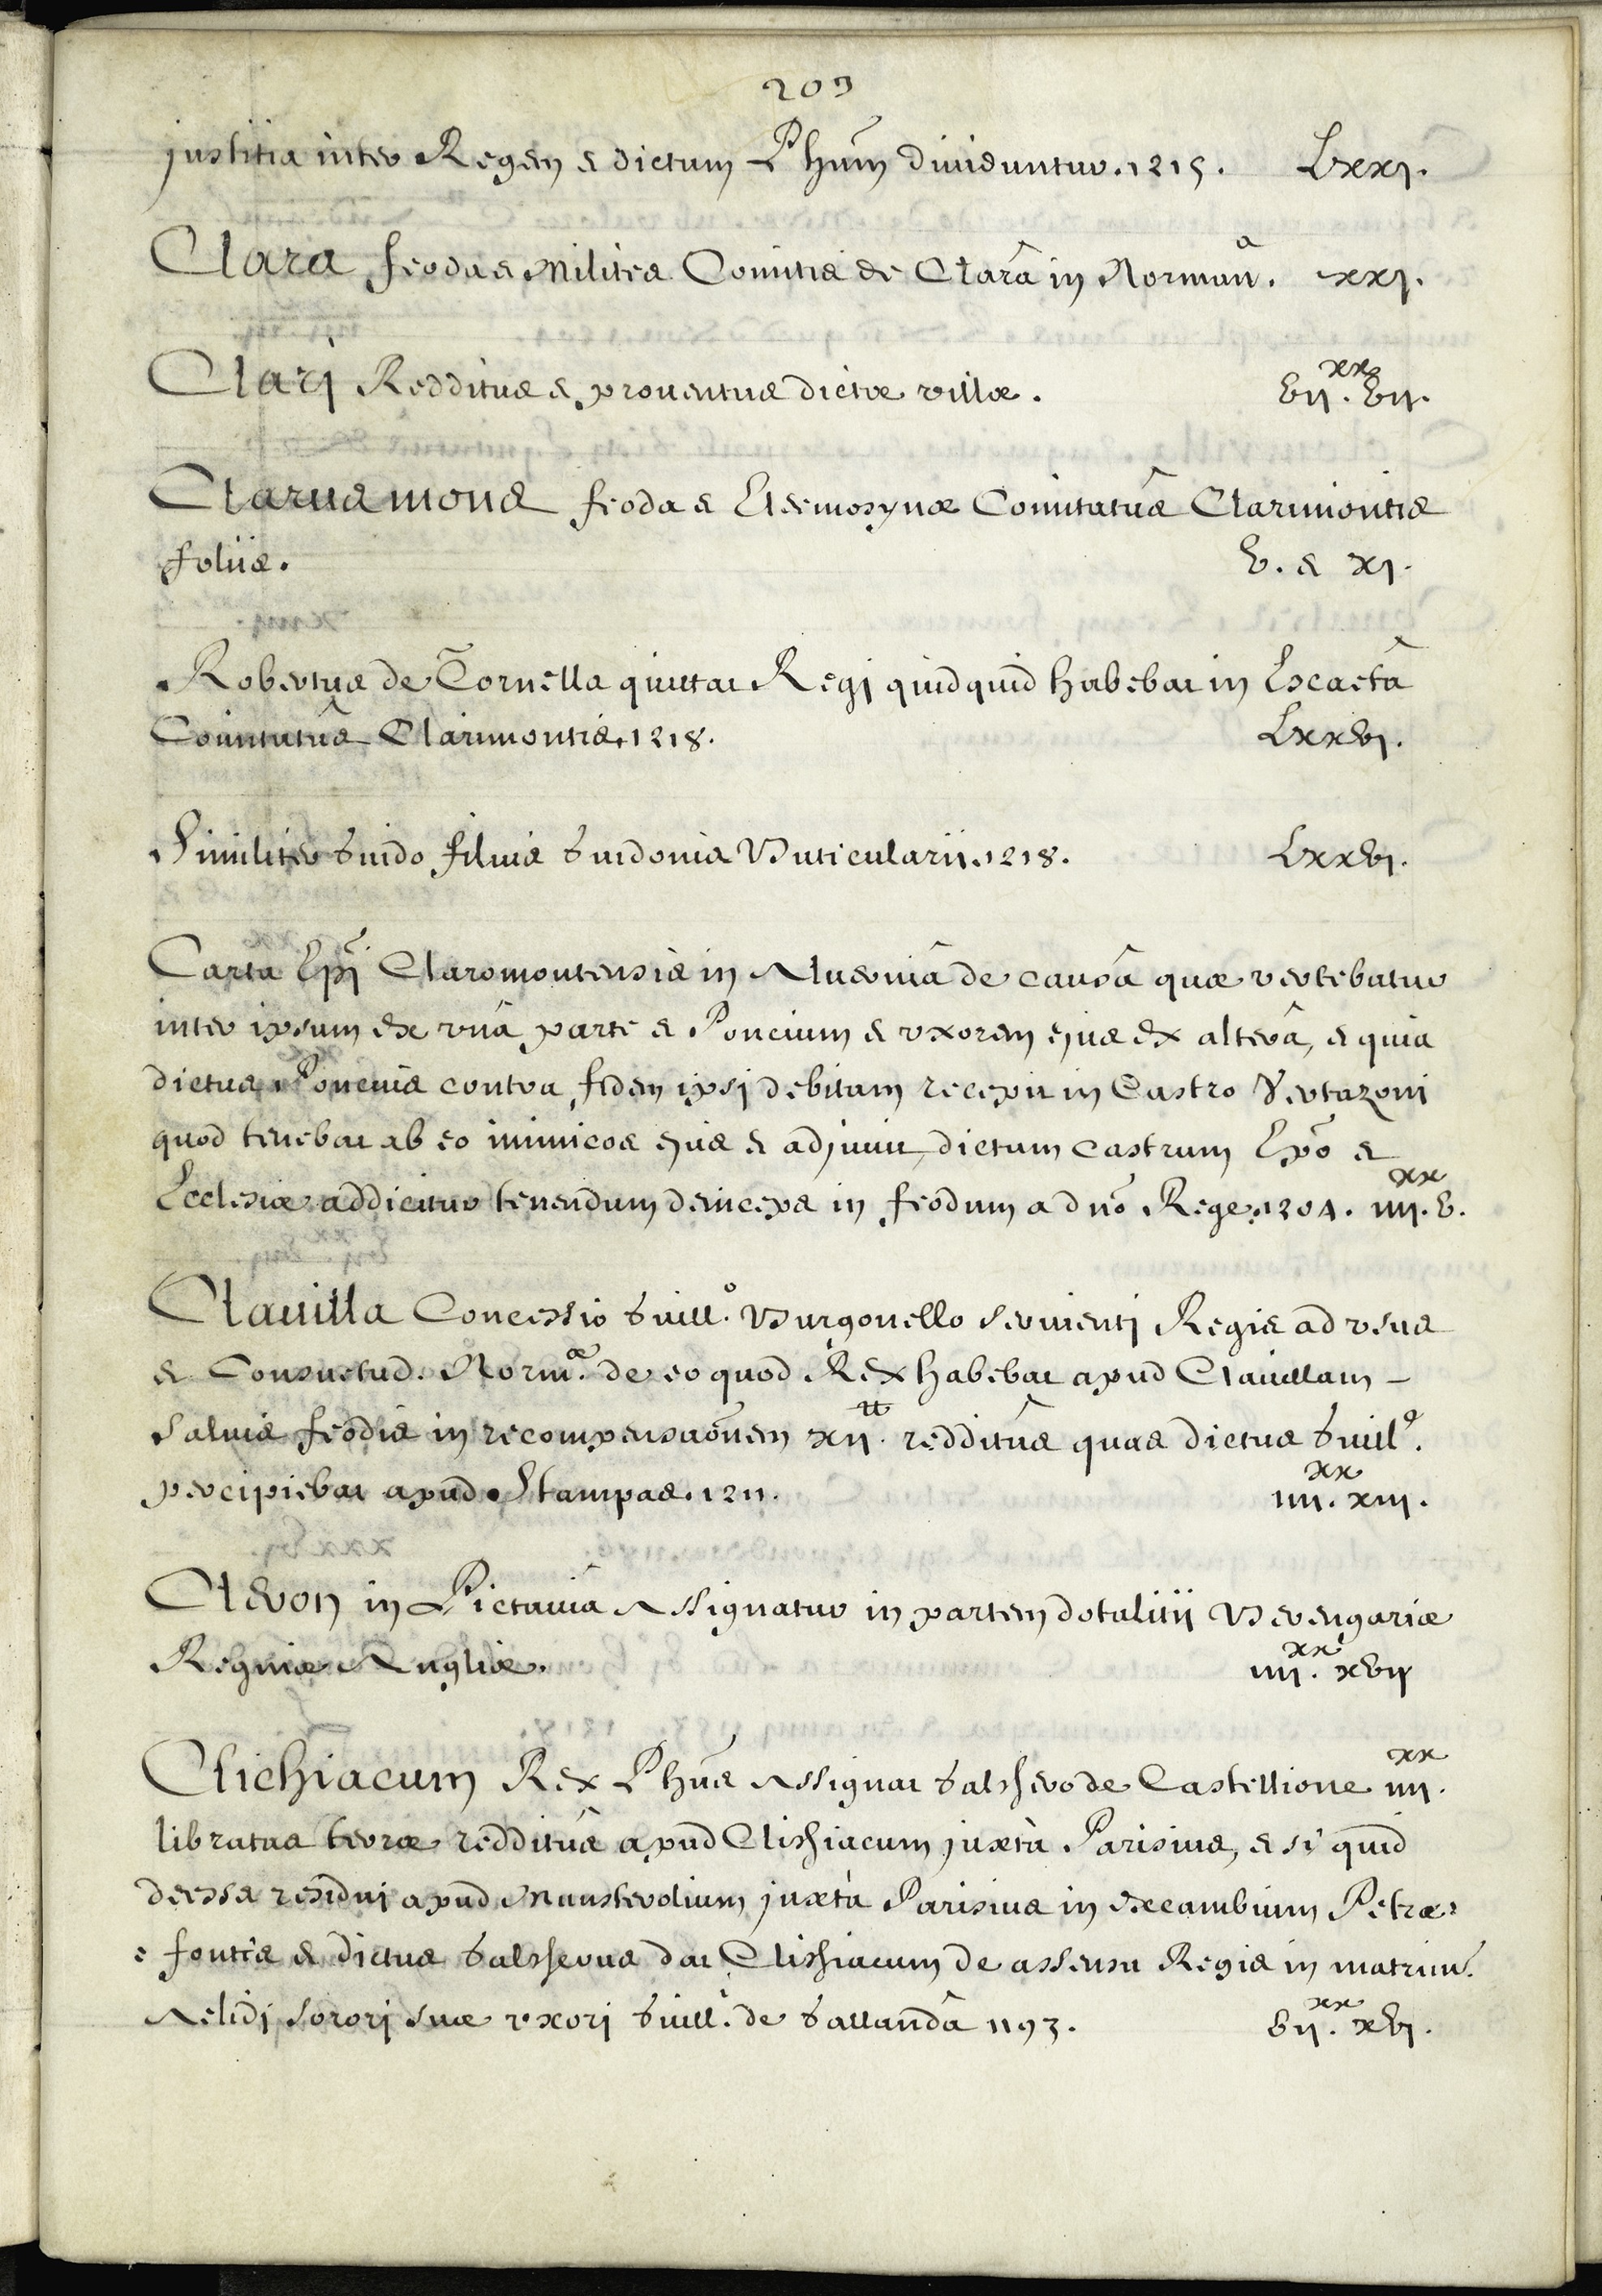 209
justitia inter Regem & dictum Phum̃ dividuntur. 1215. Lxxj.
Clara feoda & Milites Comitis de Clarâ in Normañ.ᵃ xxj.
Clarj Redditus & proventus dictæ villæ. vijˣˣ. vij.
Clarus mons feoda & Eleemosynæ Comitatûs Clarimontis
foliis. v. & xj.
Robertus de Tornella quittat Regi quidquid habebat in Escaetâ
Comitatûs Clarimontis. 1218. Lxxvj.
Similiter Guido filius Guidonis Buticularij. 1218. Lxxvj.
Carta Epĩ Claromontensis in Alverniâ de causâ quæ vertebatur
inter ipsum ex unâ parte & Poncium & uxorem ejus ex alterâ, & quia
dictus Poncius contra fidem ipsi debitam recepit in Castro Vertazoni
quod tenebat ab eo inimicos ejus & adjuvit, dictum castrum Epõ &
Ecclesiæ addicitur tenendum deinceps in feodum a dñõ Rege. 1204. iiijˣˣ. v.
Clavilla Concessio Guill.º Burgonello servienti Regis ad usus
& Consuetud. Norm.æ de eo quod Rex habebat apud Clavillam -
salvis feodis in recompensaõnem xij.ᵗᵗ redditûs quas dictus Guill.º
percipiebat apud Stampas. 1211. iiijˣˣ. xiij.
Clevon in Pictaviâ Assignatur in partem dotalitii Berengariæ
Reginæ Angliæ. iiijˣˣ. xvij
Clichiacum Rex Phus̃ Assignat Galchero de Castellione iiijˣˣ.
libratas terræ redditûs apud Clichiacum juxtà Parisius, & si quid
deesset residui apud Monsterolium juxtà Parisius in Excambium Petræ-
=fontis & dictus Galcherus dat Clichiacum de assensu Regis in matrim.
Aelidj sororj suæ uxorj Guill.ⁱ de Gallandâ 1193. vijˣˣ. xvj.